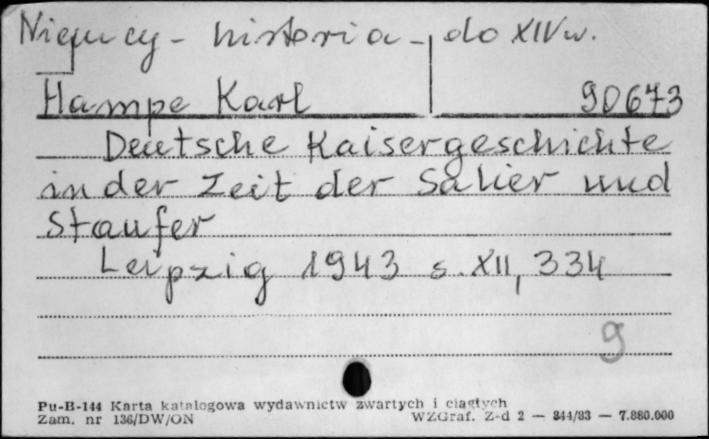 Niemcy - historia - do XIV w.
Hampe Karl 90673
Deutsche Kaisergeschichte
in der Zeit der Salier und
Staufer
Leipzig 1943 s. XII, 334
9
Pu-B-144 Karta katalogowa wydawnictw zwartych i ciągłych
Zam. nr 136/DW/ON WZGraf. Z-d 2 — 344/83 — 7.880.000